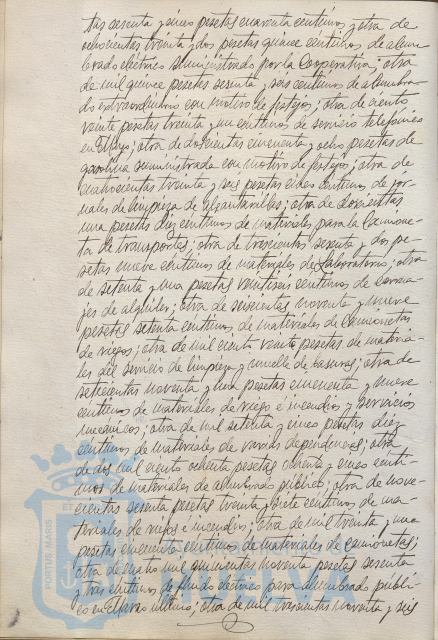 tas sesenta y cinco pesetas cuarenta céntimos y otra de
ochocientas treinta y dos pesetas quince céntimos de alum-
brado eléctrico suministrado por la Cooperativa; otra
de mil quince pesetas sesenta y seis céntimos de alumbra-
do extraordinario con motivo de festejos; otra de ciento
veinte pesetas treinta y un céntimos de servicio telefónico
en Mayo; otra de doscientas cincuenta y ocho pesetas de
gasolina suministrada con motivo de festejos; otra de
cuatrocientas treinta y seis pesetas cinco céntimos de jor-
nales de limpieza de alcantarillas; otra de doscientas
una pesetas diez céntimos de materiales para la Camione-
ta de transportes; otra de trescientas sesenta y dos pe-
setas nueve céntimos de materiales de Laboratorio; otra
de setenta y una pesetas veintiseis céntimos de carrua-
jes de alquiler; otra de seiscientas noventa y nueve
pesetas setenta céntimos de materiales de camionetas
de riegos; otra de mil ciento veinte pesetas de materia-
les del servicio de limpieza y muelle de basuras; otra de
setecientas noventa y una pesetas cincuenta y nueve
céntimos de materiales de riegos é incendios y servicios
mecánicos; otra de mil setenta y cinco pesetas diez
céntimos de materiales de varias dependencias; otra
de dos mil ciento ochenta pesetas ochenta y cinco cénti-
mos de materiales de alumbrado público; otra de nove-
cientas sesenta pesetas treinta y siete céntimos de ma-
teriales de riegos e incendios; otra de mil treinta y una
pesetas cincuenta céntimos de materiales de camionetas;
otra de ocho mil quinientas noventa pesetas sesenta
y tres céntimos de fluido eléctrico para alumbrado públi-
co en Marzo último; otra de mil trescientas noventa y seis
PORTUS MARIS
ET